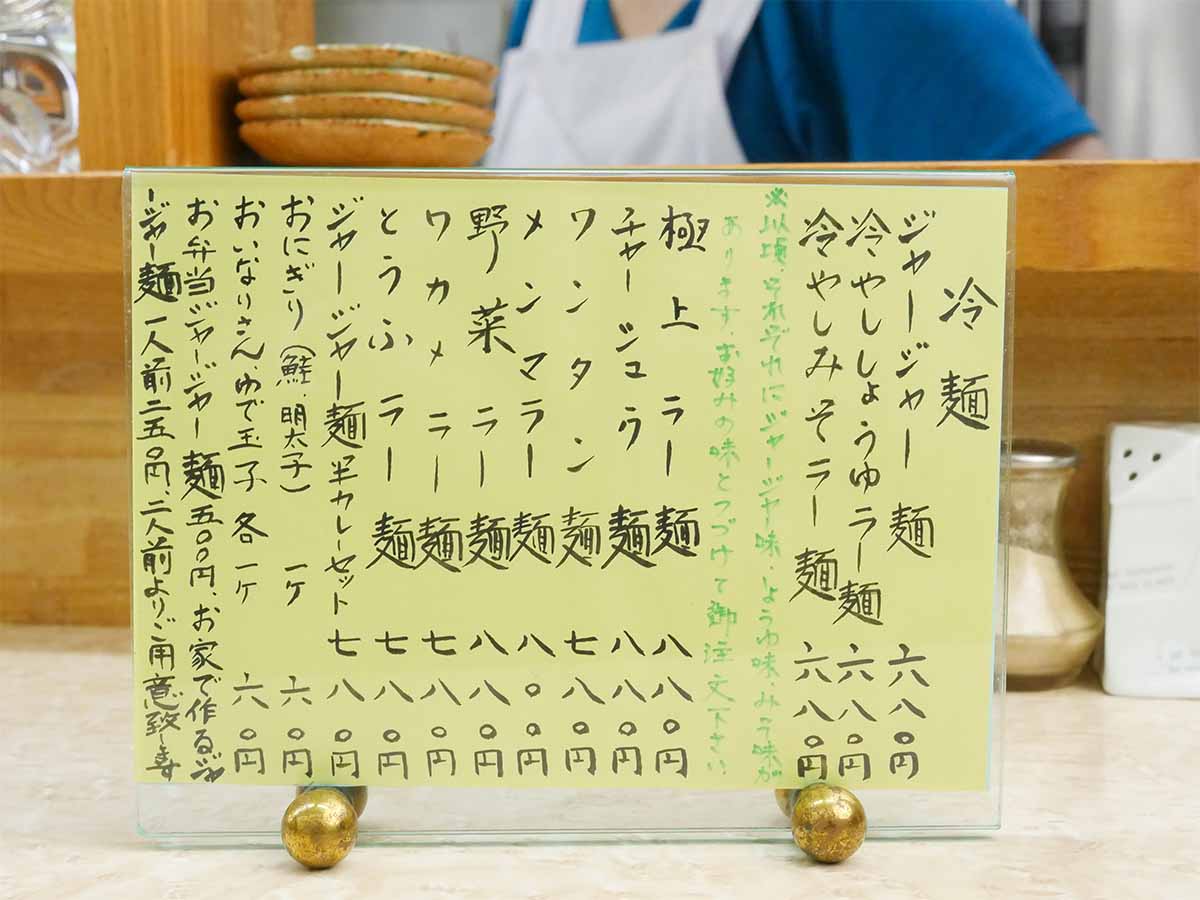 冷麺
ジャージャー麺 六八〇円
冷やししょうゆラー麺 六八〇円
冷やしみそラー麺 六八〇円
※以項、それぞれにジャージャー味・しょうゆ味・みそ味が
あります。お好みの味とつづけて御注文下さい
極上ラー麺 八八〇円
チャーシュウ麺 八八〇円
ワンタン麺 七八〇円
メンマラー麺 八〇〇円
野菜ラー麺 八八〇円
ワカメラー麺 七八〇円
とうふラー麺 七八〇円
ジャージャー麺半カレーセット 七八〇円
おにぎり(鮭、明太子) 一ケ 六〇円
おいなりさん、ゆで玉子 各一ケ 六〇円
お弁当ジャージャー麺五〇〇円、お家で作るジャ
ージャー麺一人前二五〇円、二人前よりご用意致します